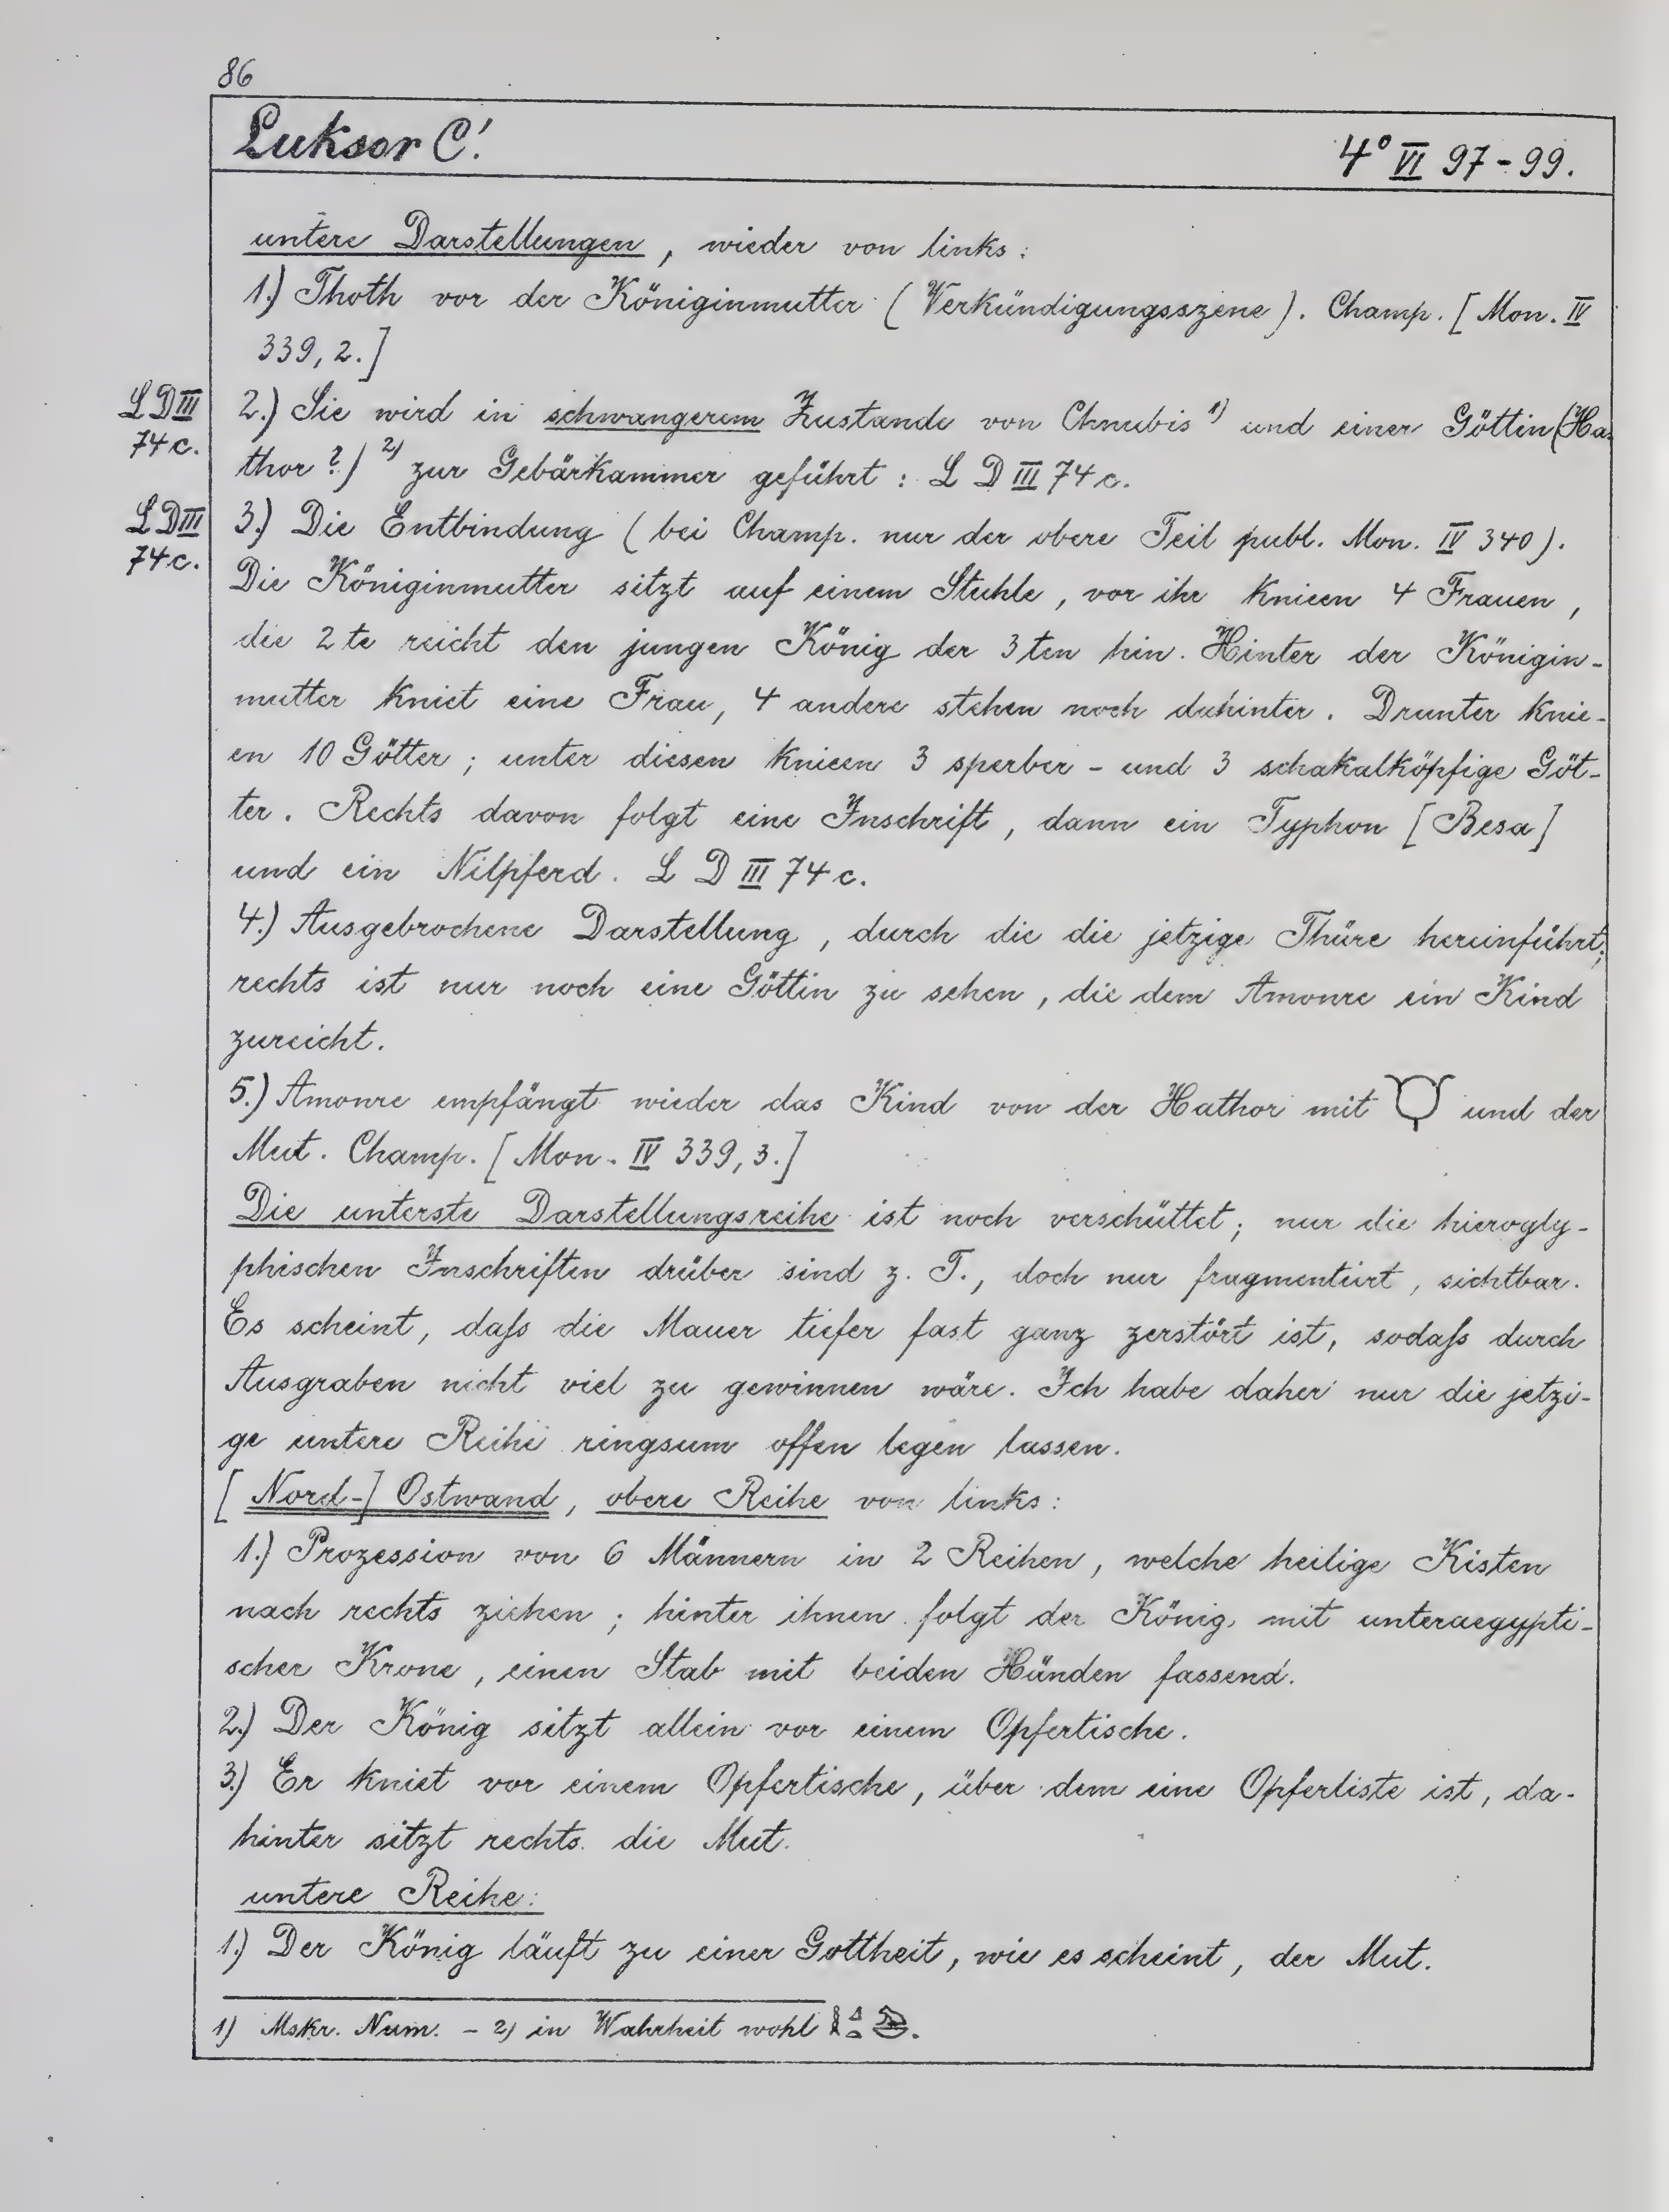 86
Luksor C'.
4° VI 97-99.
untere Darstellungen, wieder von links:
1.) Thoth vor der Königinmutter (Verkündigungsszene). Champ. [Mon. IV
339, 2.]
LD III
74c.
2.) Sie wird in schwangerem Zustande von Chnubis 1) und einer Göttin (Ha-
thor ?) 2) zur Gebärkammer geführt: L D III 74 c.
LD III
74c.
3.) Die Entbindung (bei Champ. nur der obere Teil publ. Mon. IV 340).
Die Königinmutter sitzt auf einem Stuhle, vor ihr knieen 4 Frauen,
die 2te reicht den jungen König der 3ten hin. Hinter der Königin-
mutter kniet eine Frau, 4 andere stehen noch dahinter. Drunter knie-
en 10 Götter; unter diesen knieen 3 sperber- und 3 schakalköpfige Göt-
ter. Rechts davon folgt eine Inschrift, dann ein Typhon [Besa]
und ein Nilpferd. L D III 74 c.
4.) Ausgebrochene Darstellung, durch die die jetzige Thüre hereinführt;
rechts ist nur noch eine Göttin zu sehen, die dem Amonre ein Kind
zureicht.
5.) Amonre empfängt wieder das Kind von der Hathor mit und der
Mut. Champ. [Mon. IV 339, 3.]
Die unterste Darstellungsreihe ist noch verschüttet; nur die hierogly-
phischen Inschriften drüber sind z. T., doch nur fragmentiert, sichtbar.
Es scheint, daſs die Mauer tiefer fast ganz zerstört ist, sodaſs durch
Ausgraben nicht viel zu gewinnen wäre. Ich habe daher nur die jetzi-
ge untere Reihe ringsum offen legen lassen.
[Nord-] Ostwand, obere Reihe von links:
1.) Prozession von 6 Männern in 2 Reihen, welche heilige Kisten
nach rechts ziehen; hinter ihnen folgt der König mit unteraegypti-
scher Krone, einen Stab mit beiden Händen fassend.
2.) Der König sitzt allein vor einem Opfertische.
3.) Er kniet vor einem Opfertische, über dem eine Opferliste ist, da-
hinter sitzt rechts die Mut.
untere Reihe:
1.) Der König läuft zu einer Gottheit, wie es scheint, der Mut.
1) Mskr. Num. - 2) in Wahrheit wohl